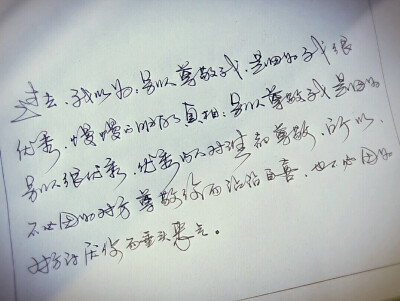 过去,我以为,别人尊敬我,是因为我很
优秀,慢慢的明白了真相:别人尊敬我是因为
别人很优秀,优秀的人对谁都尊敬,所以,
不必因为对方尊敬你而沾沾自喜,也不必因为
对方讨厌你而垂头丧气。